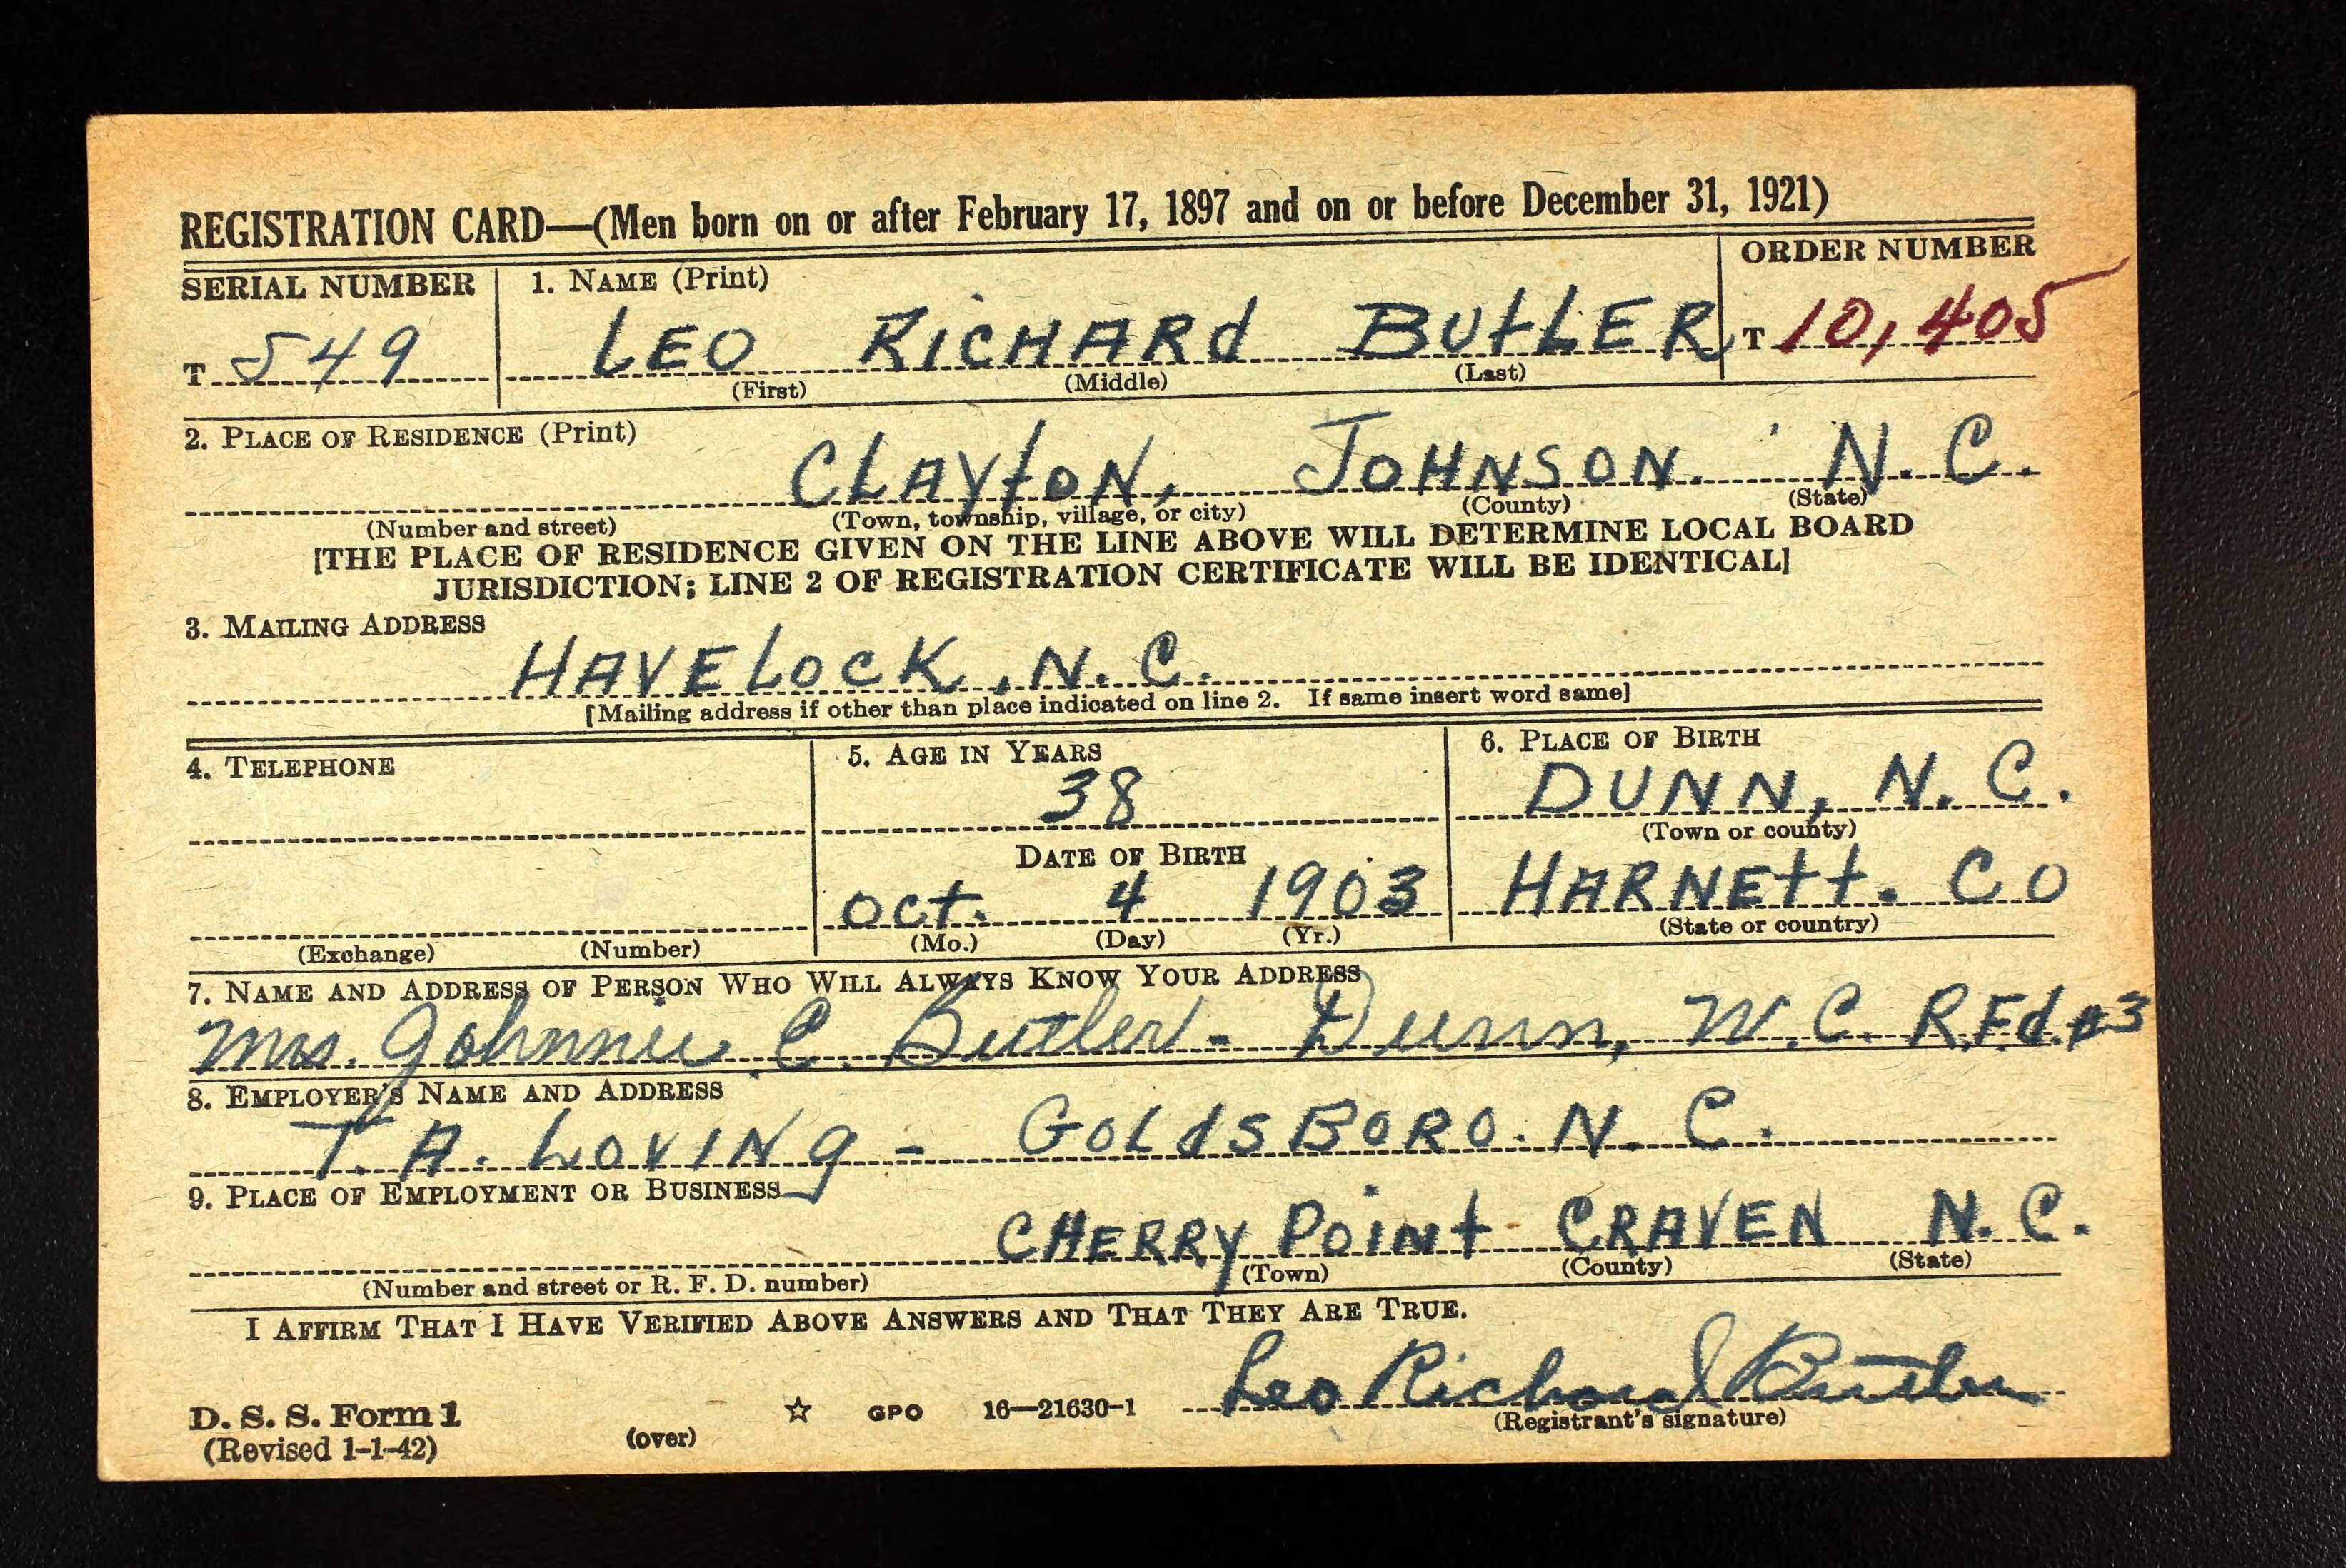 REGISTRATION CARD—(Men born on or after February 17, 1897 and on or before December 31, 1921)
SERIAL NUMBER 1. NAME (Print) ORDER NUMBER
T 549 LEO RICHARd BUtLER T 10,405
(First) (Middle) (Last)
2. PLACE OF RESIDENCE (Print)
CLAYtON, JOHNSON. N. C.
(Number and street) (Town, township, village, or city) (County) (State)
[THE PLACE OF RESIDENCE GIVEN ON THE LINE ABOVE WILL DETERMINE LOCAL BOARD
JURISDICTION; LINE 2 OF REGISTRATION CERTIFICATE WILL BE IDENTICAL]
3. MAILING ADDRESS
HAVELOCK, N. C.
[Mailing address if other than place indicated on line 2. If same insert word same]
4. TELEPHONE 5. AGE IN YEARS 6. PLACE OF BIRTH
38 DUNN, N. C.
(Town or county)
DATE OF BIRTH
Oct. 4 1903 HARNEtt. CO
(Exchange) (Number) (Mo.) (Day) (Yr.) (State or country)
7. NAME AND ADDRESS OF PERSON WHO WILL ALWAYS KNOW YOUR ADDRESS
Mrs. Johnnie C. Butler - Dunn, N. C. R.F.d. #3
8. EMPLOYER'S NAME AND ADDRESS
T. A. LOVINg - GOLdSBORO. N. C.
9. PLACE OF EMPLOYMENT OR BUSINESS
CHERRY POiNt CRAVEN N. C.
(Number and street or R. F. D. number) (Town) (County) (State)
I AFFIRM THAT I HAVE VERIFIED ABOVE ANSWERS AND THAT THEY ARE TRUE.
Leo Richard Butler
D. S. S. Form 1 ☆ GPO 16—21630-1 (Registrant's signature)
(Revised 1-1-42) (over)